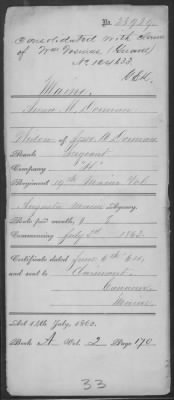 No. 23929.
Consolidated with claim
of Wm Dorman (Guard)
No 104633.
Maine.
Anna M. Dorman
Widow of W. Dorman
Rank Sergeant
Company "H"
Regiment 19th Maine Vol
Augusta Maine Agency.
Rate per month, $ 8
Commencing July 2d 1863.
Certificate dated June 6th 64,
and sent to Claimant.
Canaan
Maine.
Act 14th July, 1862.
Book A Vol. 2 Page 170
33